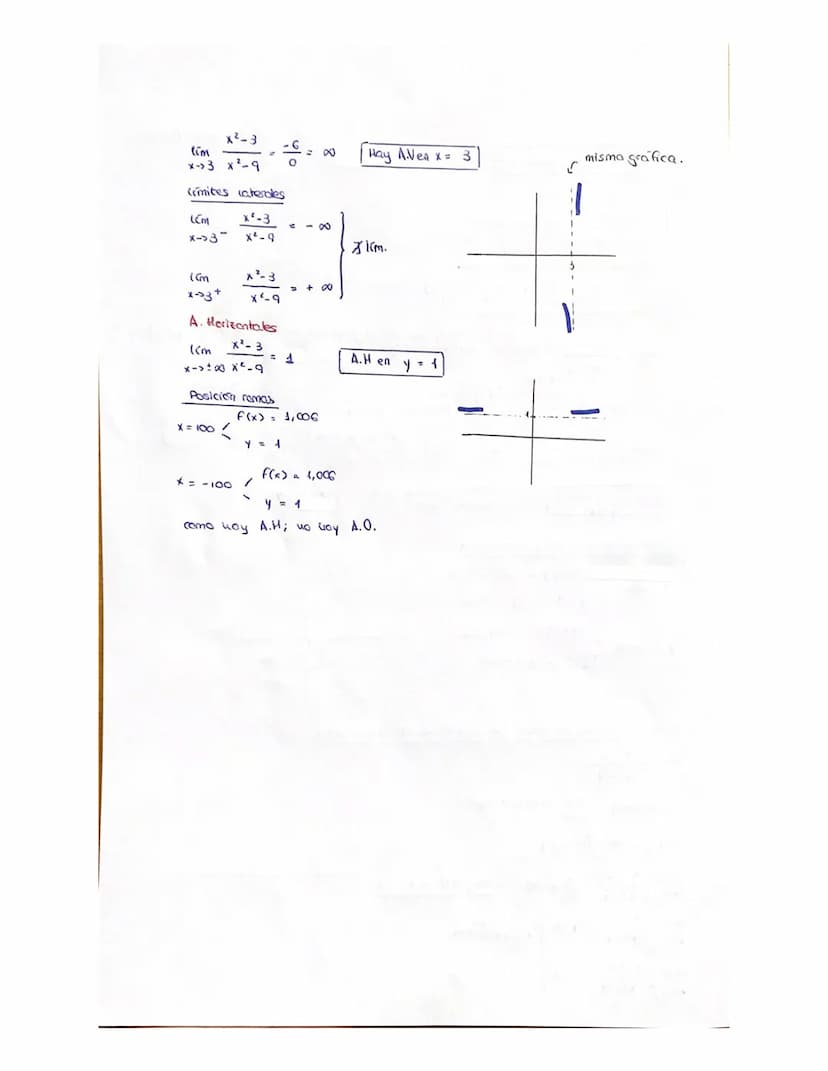 lím x→3 x²-3 / x²-9 = -6/0 = ∞ Hay A.V en x = 3
misma gráfica.
límites laterales
lím x→3⁻ x²-3 / x²-9 = - ∞
∄ lím.
lím x→3⁺ x²-3 / x²-9 = + ∞
3
A. Horizontales
lím x→±∞ x²-3 / x²-9 = 1 A.H en y = 1
Posición ramas
x = 100 f(x) = 1,006
y = 1
1
x = -100 f(x) = 1,006
y = 1
como hay A.H; no hay A.O.